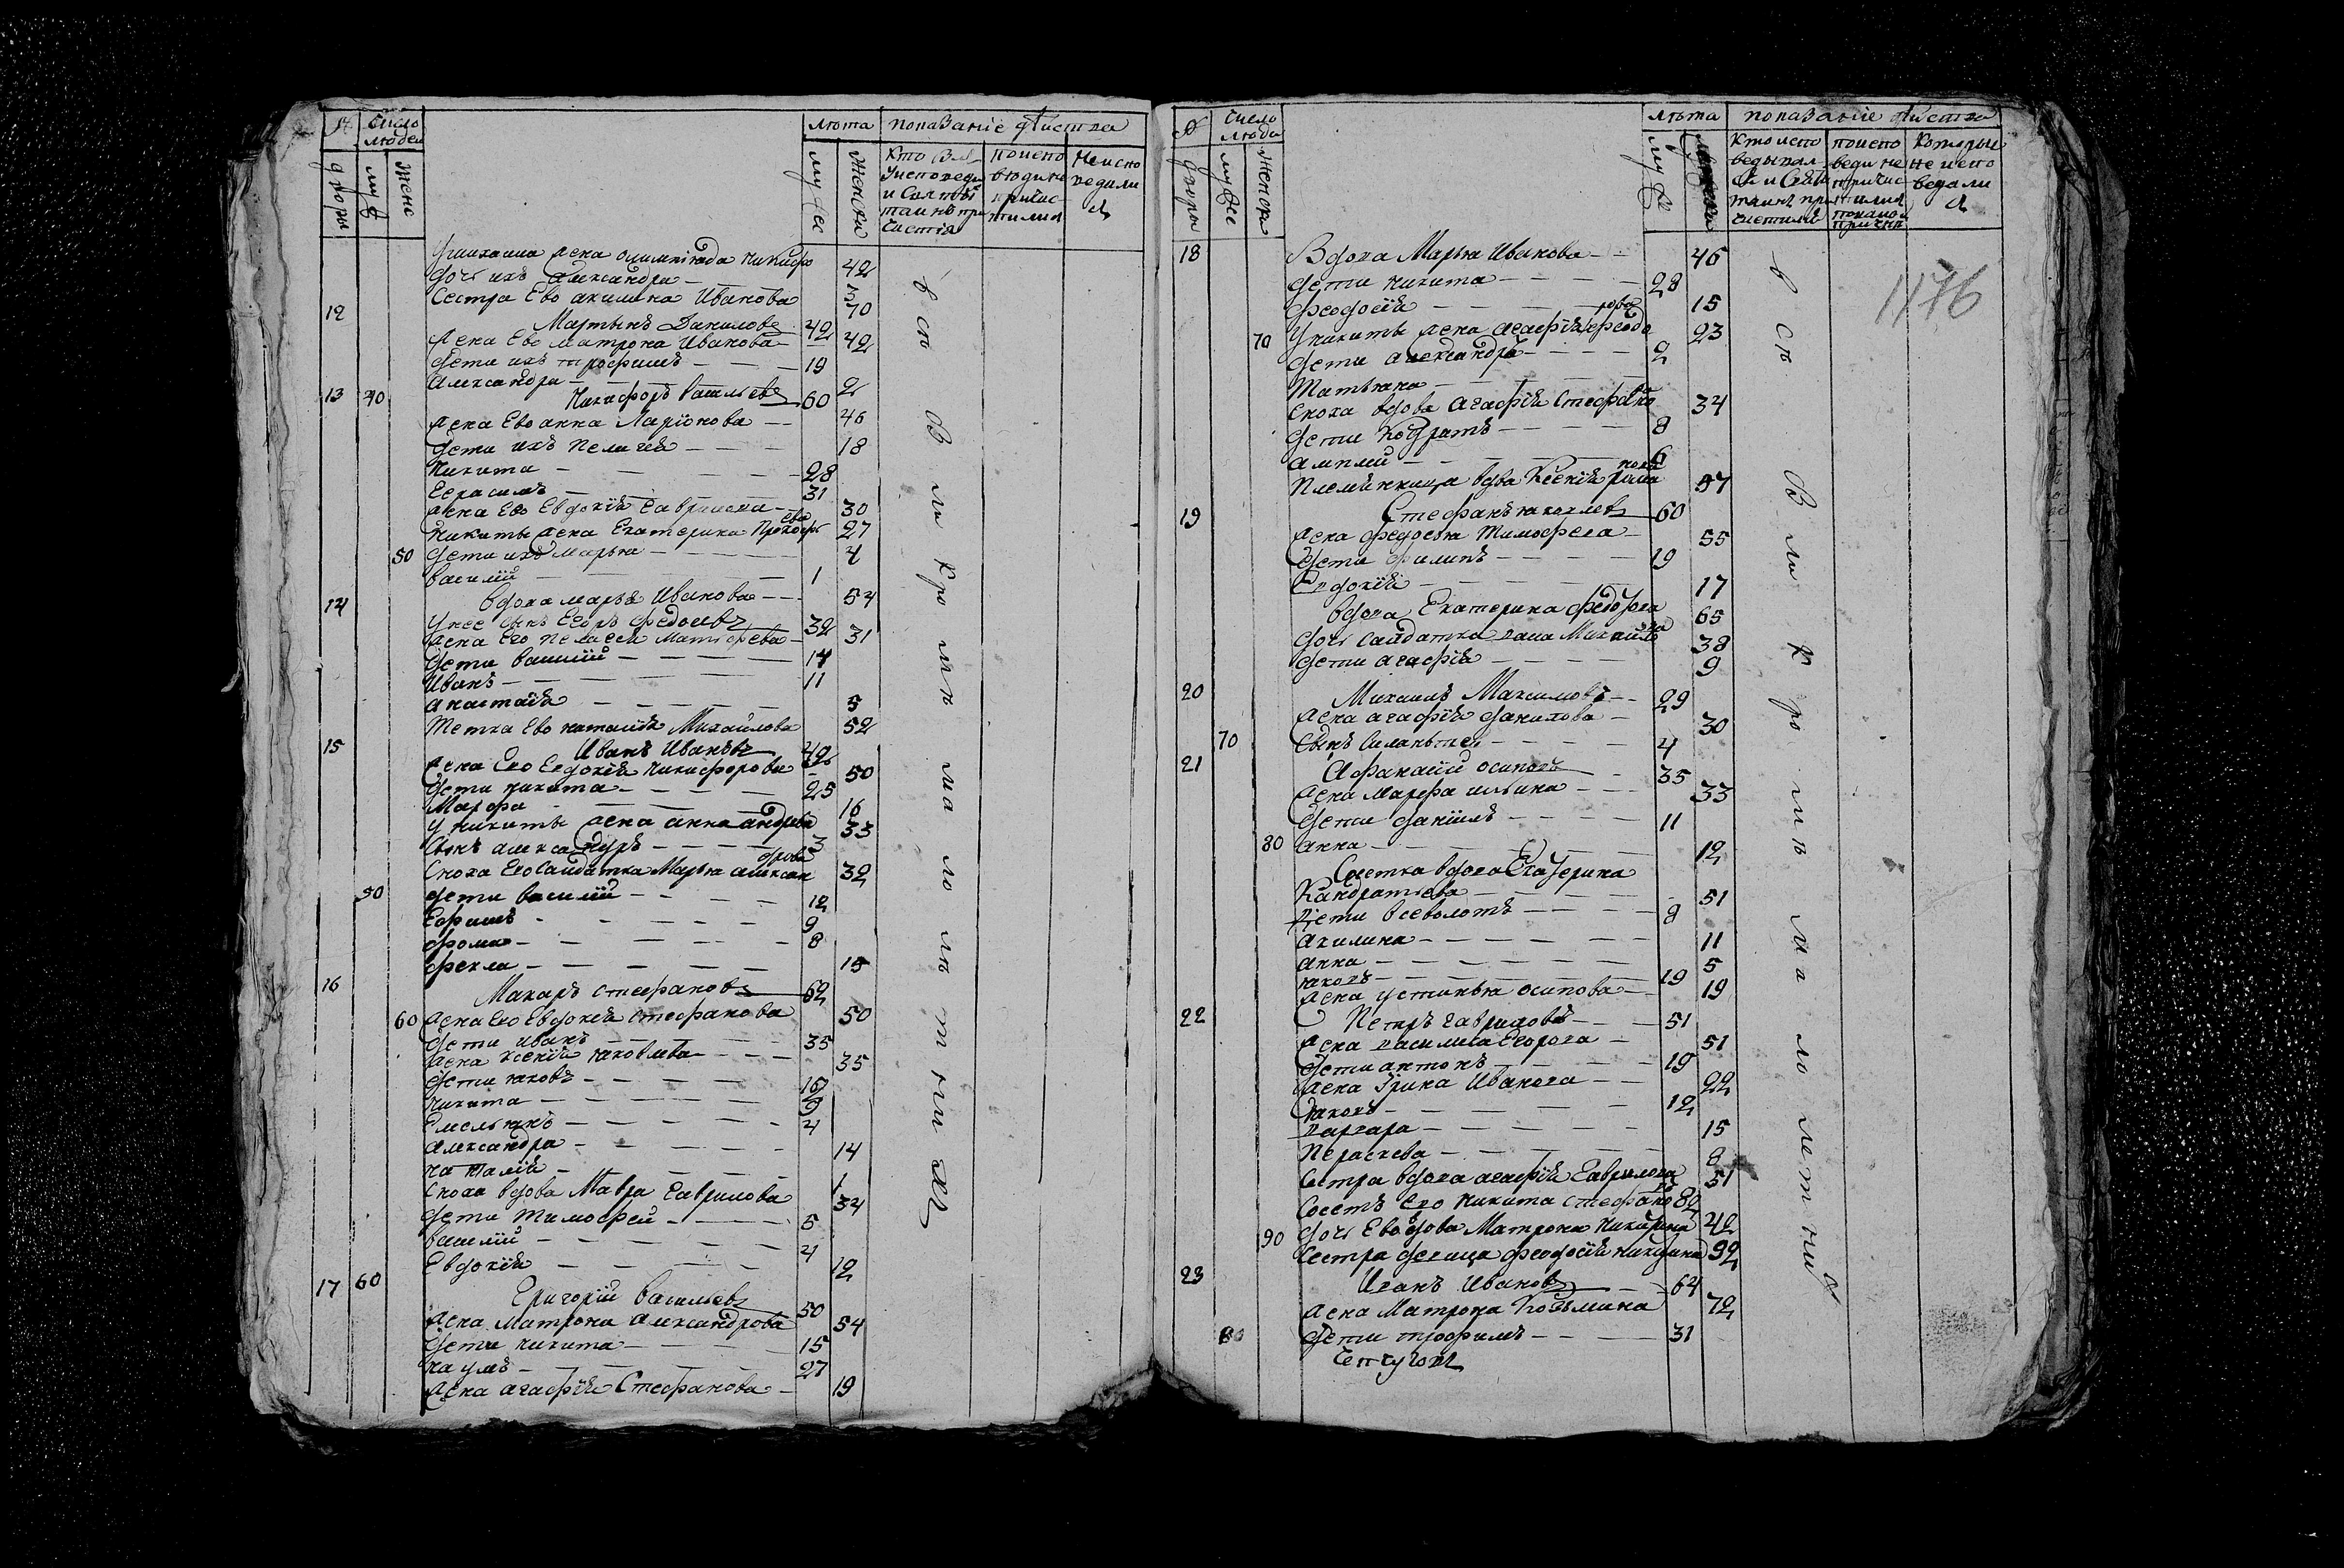 № число людей лѣта показаніе дѣиства
дворы муж женс муж женски
У михаила жена олимпиада никифо 42
дочь ихъ александра 5
Сестра Ево акилина Иванова 70
12 Мартынъ Данилов 42
жена Ево матрона Иванова 42
дети ихъ трофимъ 19
александра 2
13 40 Никифоръ васильев 60
жена Ево анна Ларионова 46
дети ихъ пелагея 18
никита 28
Герасимъ 31
жена Ево Евдокия Гаврилова 30
никиты жена Екатерина Прокофьева 27
50 дети ихъ марья 4
василій 1
14 вдова марья Иванова 54
У нее сынъ Егоръ федоов 32
жена Его пелагея Матфеева 31
дети василій 14
Иванъ 11
анастасія 5
тетка Ево наталия Михаилова 52
15 Иванъ Ивановъ 49
жена Его Евдокия никифорова 50
дети никита 25
Марфа 16
У никиты жена анна андреева 33
Сынъ александръ 3
Сноха Его Салдатка Марья александрова 32
50 дети василій 12
Ефимъ 9
фома 8
фекла 15
16 Макаръ стефанов 62
60 жена Его Евдокия стефанова 50
дети иванъ 35
жена ксения яковлева 35
дети яковъ 16
никита 9
Емельянъ 4
александра 14
наталия 1
Сноха вдова Мавра Гаврилова 34
дети тимофеи 5
василій 4
Евдокия 12
17 60 Григорій васильев 50
жена Матрона александрова 54
дети никита 15
наумъ 27
жена агафия Стефанова 19
всѣ были кромѣ малолѣтных
№ число людей лѣта показаніе дѣиства
дворы муж женски муж
1176
18 Вдова Марья Иванова 46
дети никита 28
феодосія 15
70 У никиты жена агафия феодорова 23
дети александръ 2
татьяна
Сноха вдова агафия стефанова 34
дети кодратъ 8
амплий 6
племянница вдва Ксения 57
19 Стефанъ яковлев 60
жена федосья тимофеева 55
дети филипъ 19
Евдокия 17
вдова Екатерина федорова 65
дочь салдатка Михаилова 38
дети агафия 9
20 Михаилъ Максимовъ 29
жена агафия данилова 30
70 Сынъ силантеи 4
21 афанасіи осиповъ 35
жена марфа ильина 33
дети даниилъ 11
80 анна 12
Сестка вдова Екатерина
Кандратьева 51
дети всеволотъ 9
акилина 11
анна 5
яковъ 19
жена устинья осипова 19
22 Петръ гавриловъ 51
жена василиса Егорова 51
дети антонъ 19
жена Ирина Иванова 22
яковъ 12
варвара 15
Пераскева 8
Сестра вдова агафия Гаврилова 51
Сосетъ Его никита стефанов 82
90 дочь Ево вдова Матрона никитина 42
Сестра девица феодосія никитина 32
23 Иванъ Иванов 64
жена Матрона Козьмина 72
80 дети трофимъ 31
всѣ были кромѣ малолетни